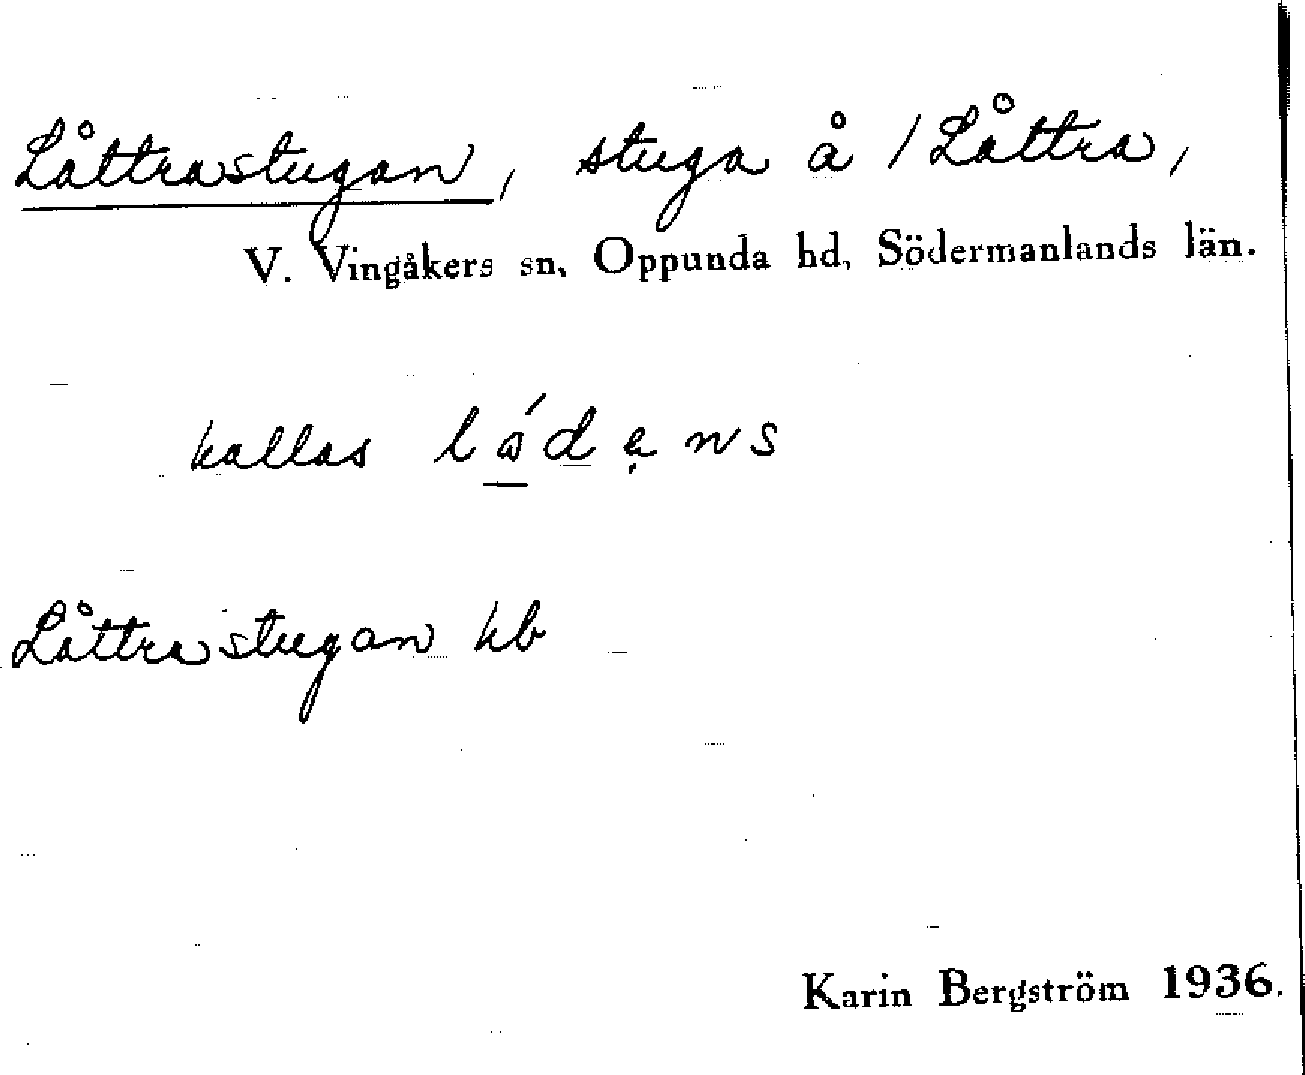 Låttrastugan, stuga å / Låttra,
V. Vingåkers sn, Oppunda hd, Södermanlands län.
kallas lǻdẹns
Låttrastugan hb
Karin Bergström 1936.